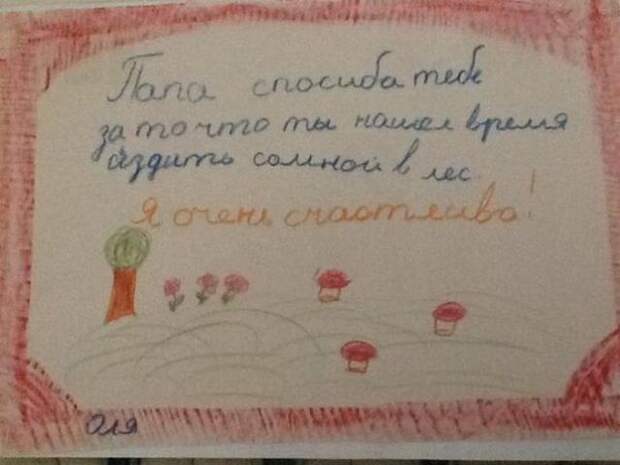 Папа спосиба тебе
за то что ты нашел время
аздить сомной в лес.
Я очень счастлива!
Оля